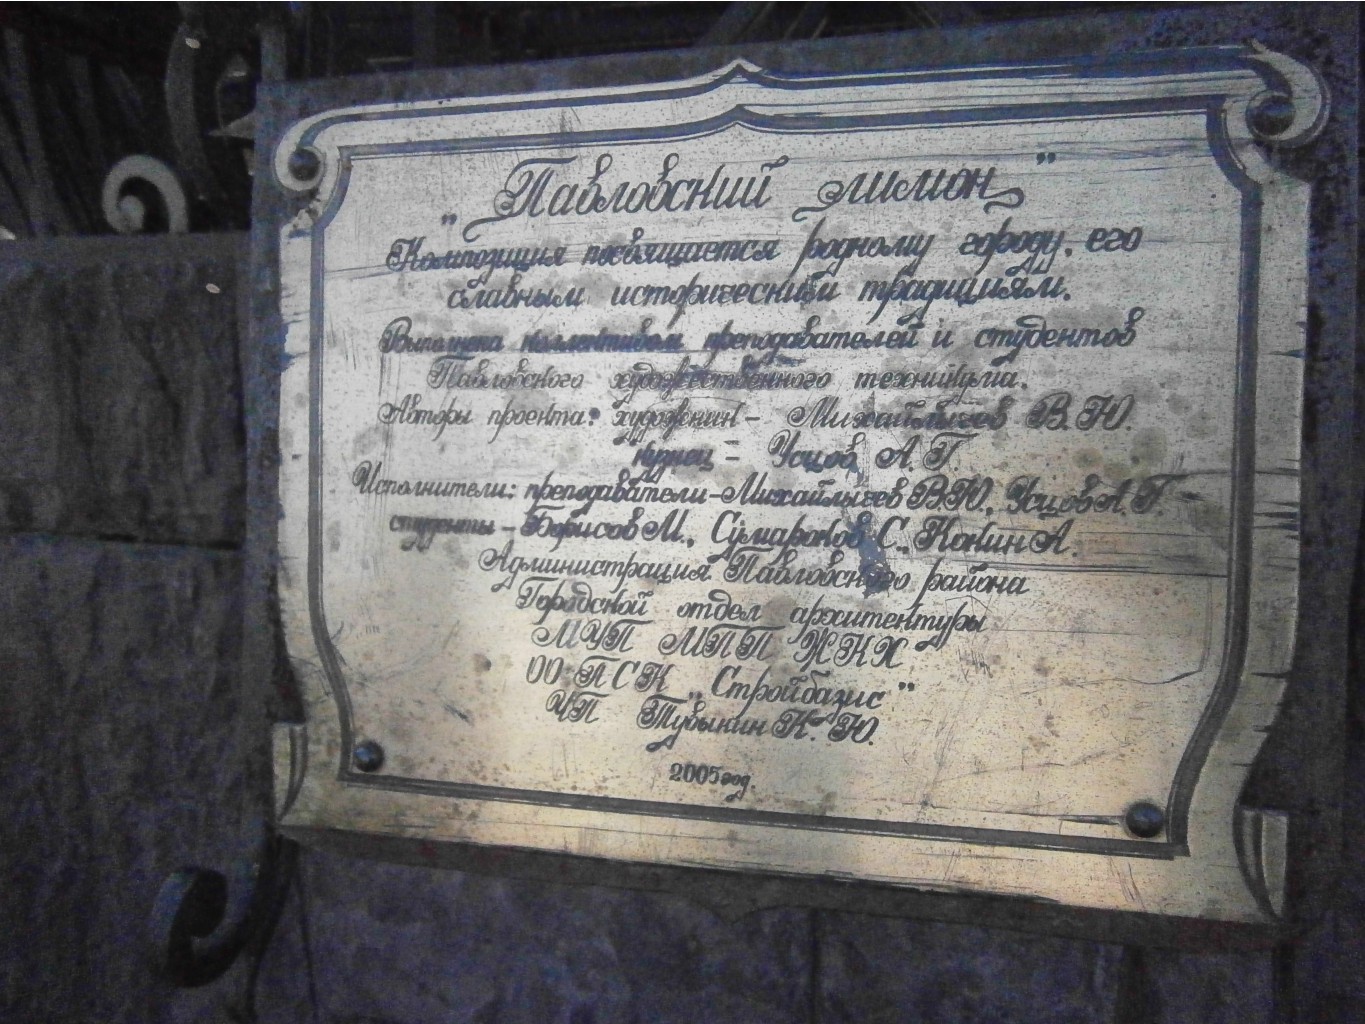 „Павловский лимон”
Композиция посвящается родному городу, его
славным историческим традициям.
Выполнена коллективом преподавателей и студентов
Павловского художественного техникума.
Авторы проекта: художник - Михайлычев В.Ю.
кузнец - Усцов А.Г.
Исполнители: преподаватели - Михайлычев В.Ю., Усцов А.Г.
студенты - Борисов М., Сумароков С., Конин А.
Администрация Павловского района
Городской отдел архитектуры
МУП МПП ЖКХ
ОО ПСК „Стройбазис”
ЧП Тувыкин К.Ю.
2005 год.